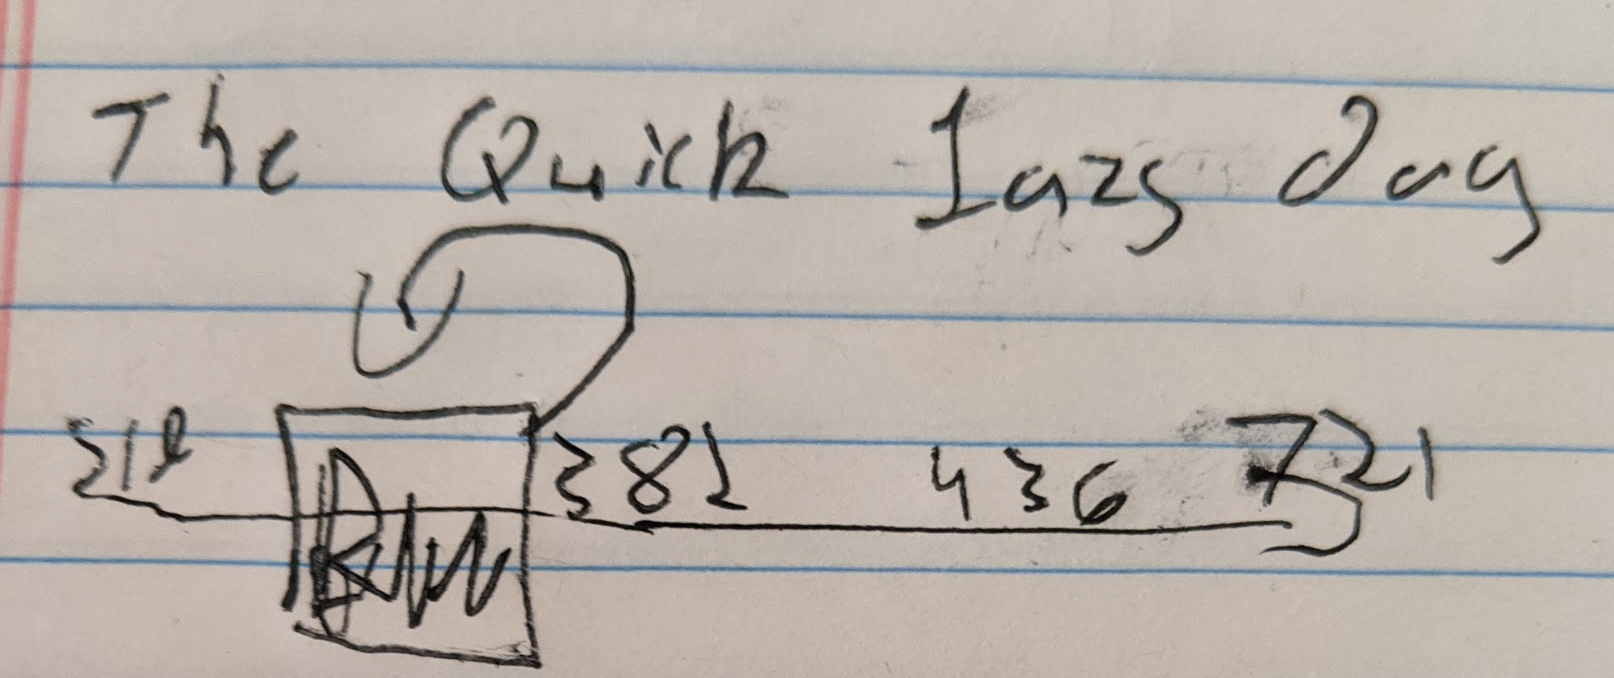 The Quick lazy dog
382 436 721